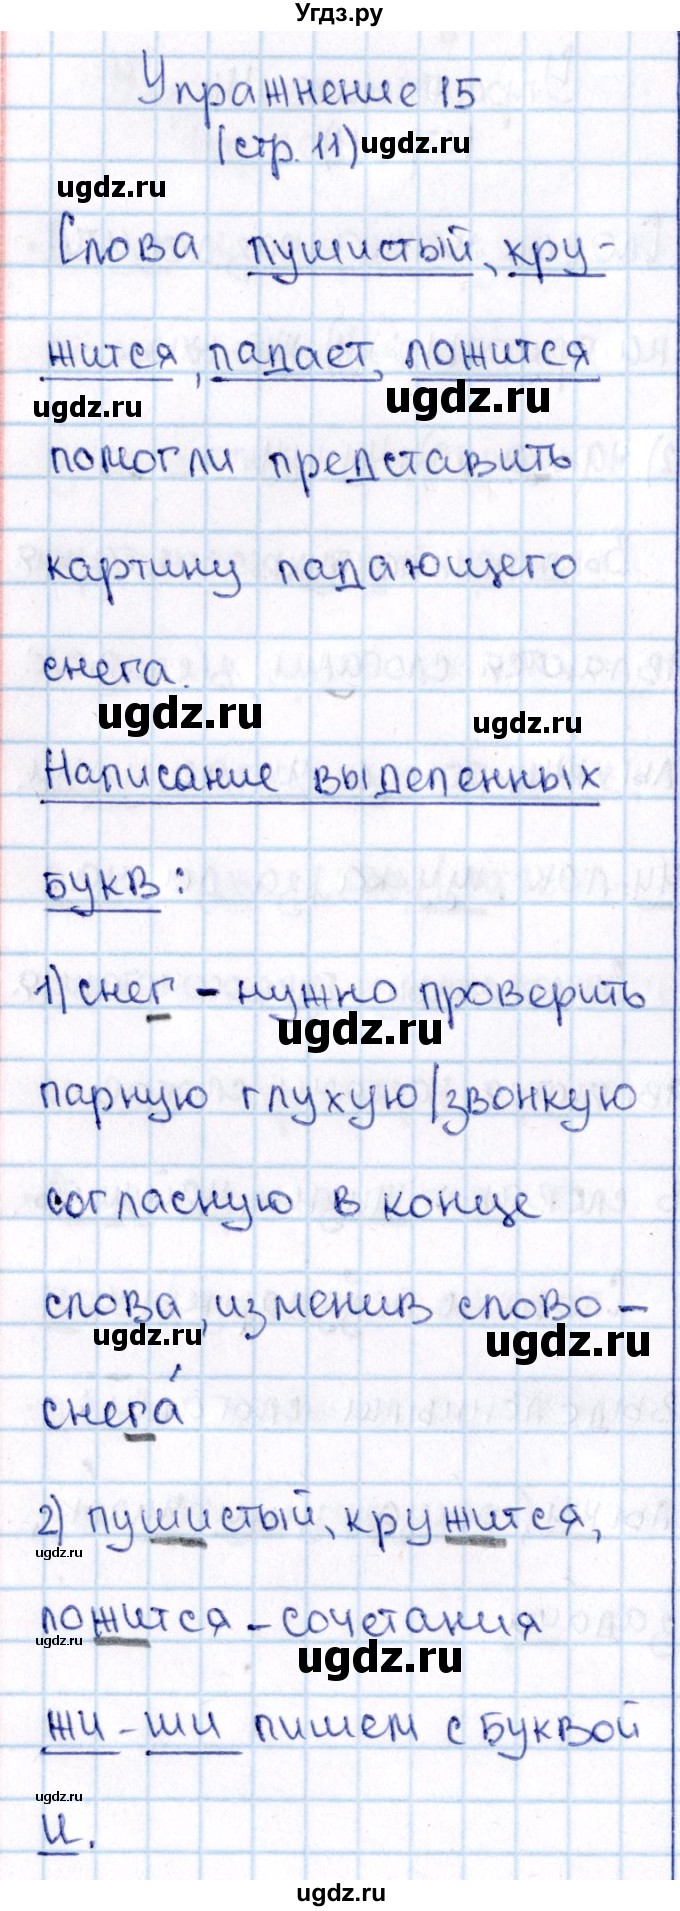 Угдз.ру
Упражнение 15
(стр. 11) ugdz.ru
ugdz.ru
Слова пушистый, кру-
жится, падает, ложится
ugdz.ru ugdz.ru
помогли представить
картину падающего
снега.
ugdz.ru ugdz.ru
Написание выделенных
букв:
1) снег - нужно проверить
ugdz.ru
парную глухую/звонкую
согласную в конце
слова, изменив слово -
ugdz.ru ugdz.ru
снега́
2) пушистый, кружится,
ugdz.ru
ложится - сочетания
ugdz.ru ugdz.ru
жи - ши пишем с буквой
ugdz.ru
и.
ugdz.ru